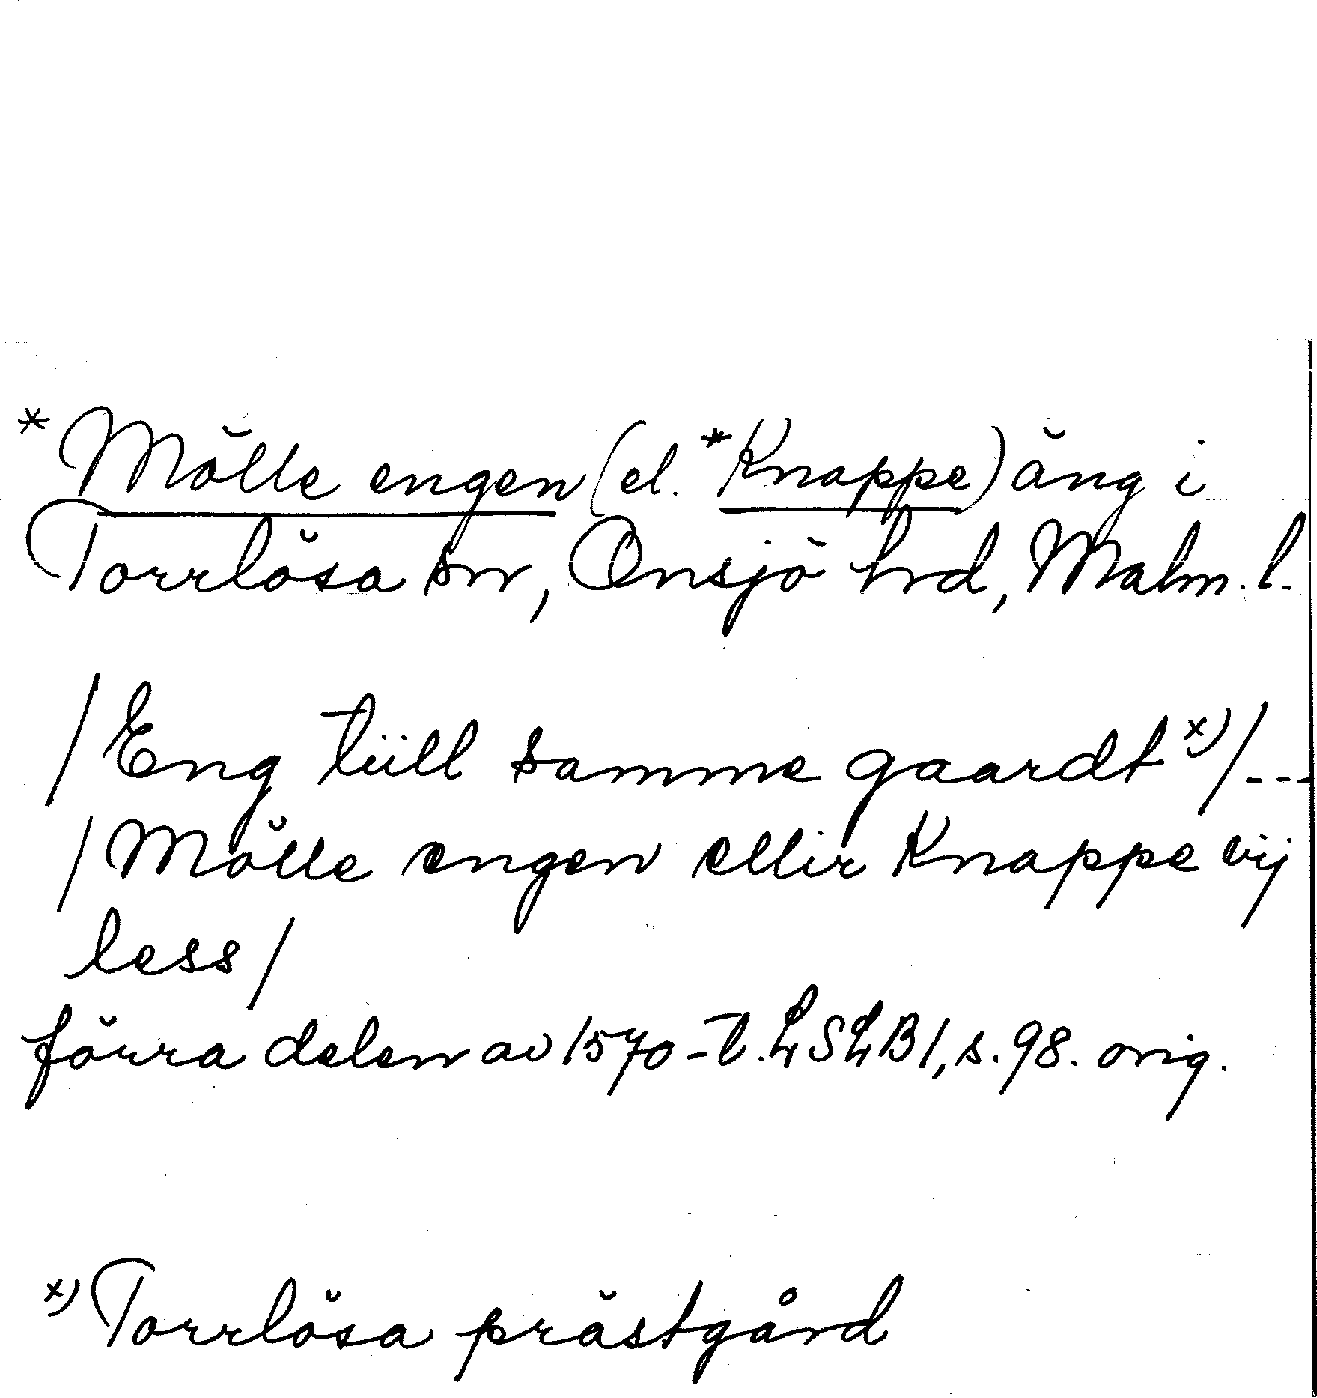 *Mölle engen (el. *Knappe) äng i
Torrlösa sn, Onsjö hrd, Malm. l.
/Eng tiill samme gaardt x)/---
/Mölle engen ellir Knappe vij
less/
förra delen av 1570-t. LSLB I, s. 98. orig.
x) Torrlösa prästgård